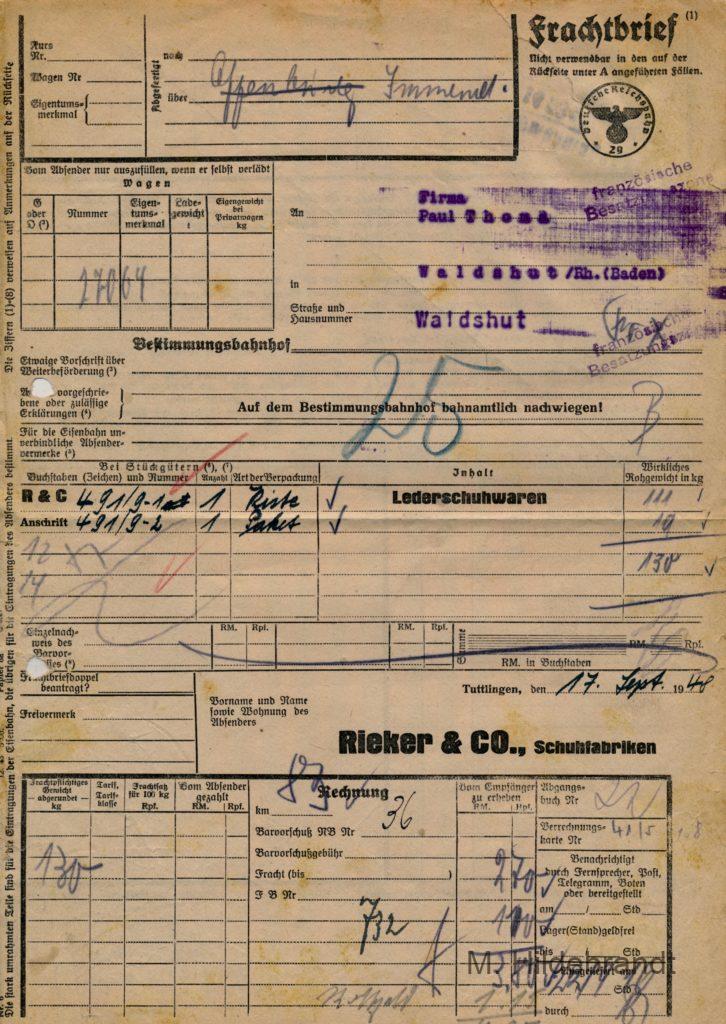 (1)
Frachtbrief
Nicht verwendbar in den auf der
Rückseite unter A angeführten Fällen.
Deutsche Reichsbahn
29
Kurs
Nr.
Wagen Nr
Eigentums-
merkmal
Abgefertigt
nach
über
Immend.
Vom Absender nur auszufüllen, wenn er selbst verlädt
Wagen
G oder O (²)
Nummer
Eigen-
tums-
merkmal
Lade-
gewicht
t
Eigengewicht
bei
Privatwagen
kg
27064
französische
An
Firma
Paul Thoma
in
Waldshut/Rh. (Baden)
Straße und
Hausnummer
Waldshut
französische
Bestimmungsbahnhof
Etwaige Vorschrift über
Weiterbeförderung (³)
vorgeschrie-
bene oder zulässige
Erklärungen (⁴)
25
Auf dem Bestimmungsbahnhof bahnamtlich nachwiegen!
Für die Eisenbahn un-
verbindliche Absender-
vermerke (⁵)
Bei Stückgütern
Buchstaben (Zeichen) und Nummer
Anzahl
Art der Verpackung
Inhalt
Wirkliches
Rohgewicht in kg
R & C 491/9-1 1 Kiste Lederschuhwaren 111
Anschrift 491/9-2 1 Paket 19
130
12
14
Einzelnach-
weis des
Barvor-
RM. Rpf. RM. Rpf.
Summe
RM. Rpf.
RM. in Buchstaben
Frachtbriefdoppel
beantragt?
Tuttlingen, den 17. Sept. 1948
Freivermerk
Vorname und Name
sowie Wohnung des
Absenders
Rieker & CO., Schuhfabriken
Frachtpflichtiges
Gewicht
— abgerundet —
kg
Tarif,
Tarif-
klasse
Frachtsatz
für 100 kg
Rpf.
Vom Absender
gezahlt
RM. Rpf.
Rechnung
km
Barvorschuß NB Nr 36
Barvorschußgebühr
Fracht (bis )
F B Nr
732
Vom Empfänger
zu erheben
RM. Rpf.
130
270
Abgangs-
buch Nr
Verrechnungs-
karte Nr
41/5
Benachrichtigt
durch Fernsprecher, Post,
Telegramm, Boten
oder bereitgestellt
am / Std
Lager(Stand)geldfrei
bis Std
Ausgeliefert am
Std
durch
M. Hildebrandt
Die Ziffern (1)-(8) verweisen auf Anmerkungen auf der Rückseite
Die stark umrahmten Teile sind für die Eintragungen der Eisenbahn, die übrigen für die Eintragungen des Absenders bestimmt.